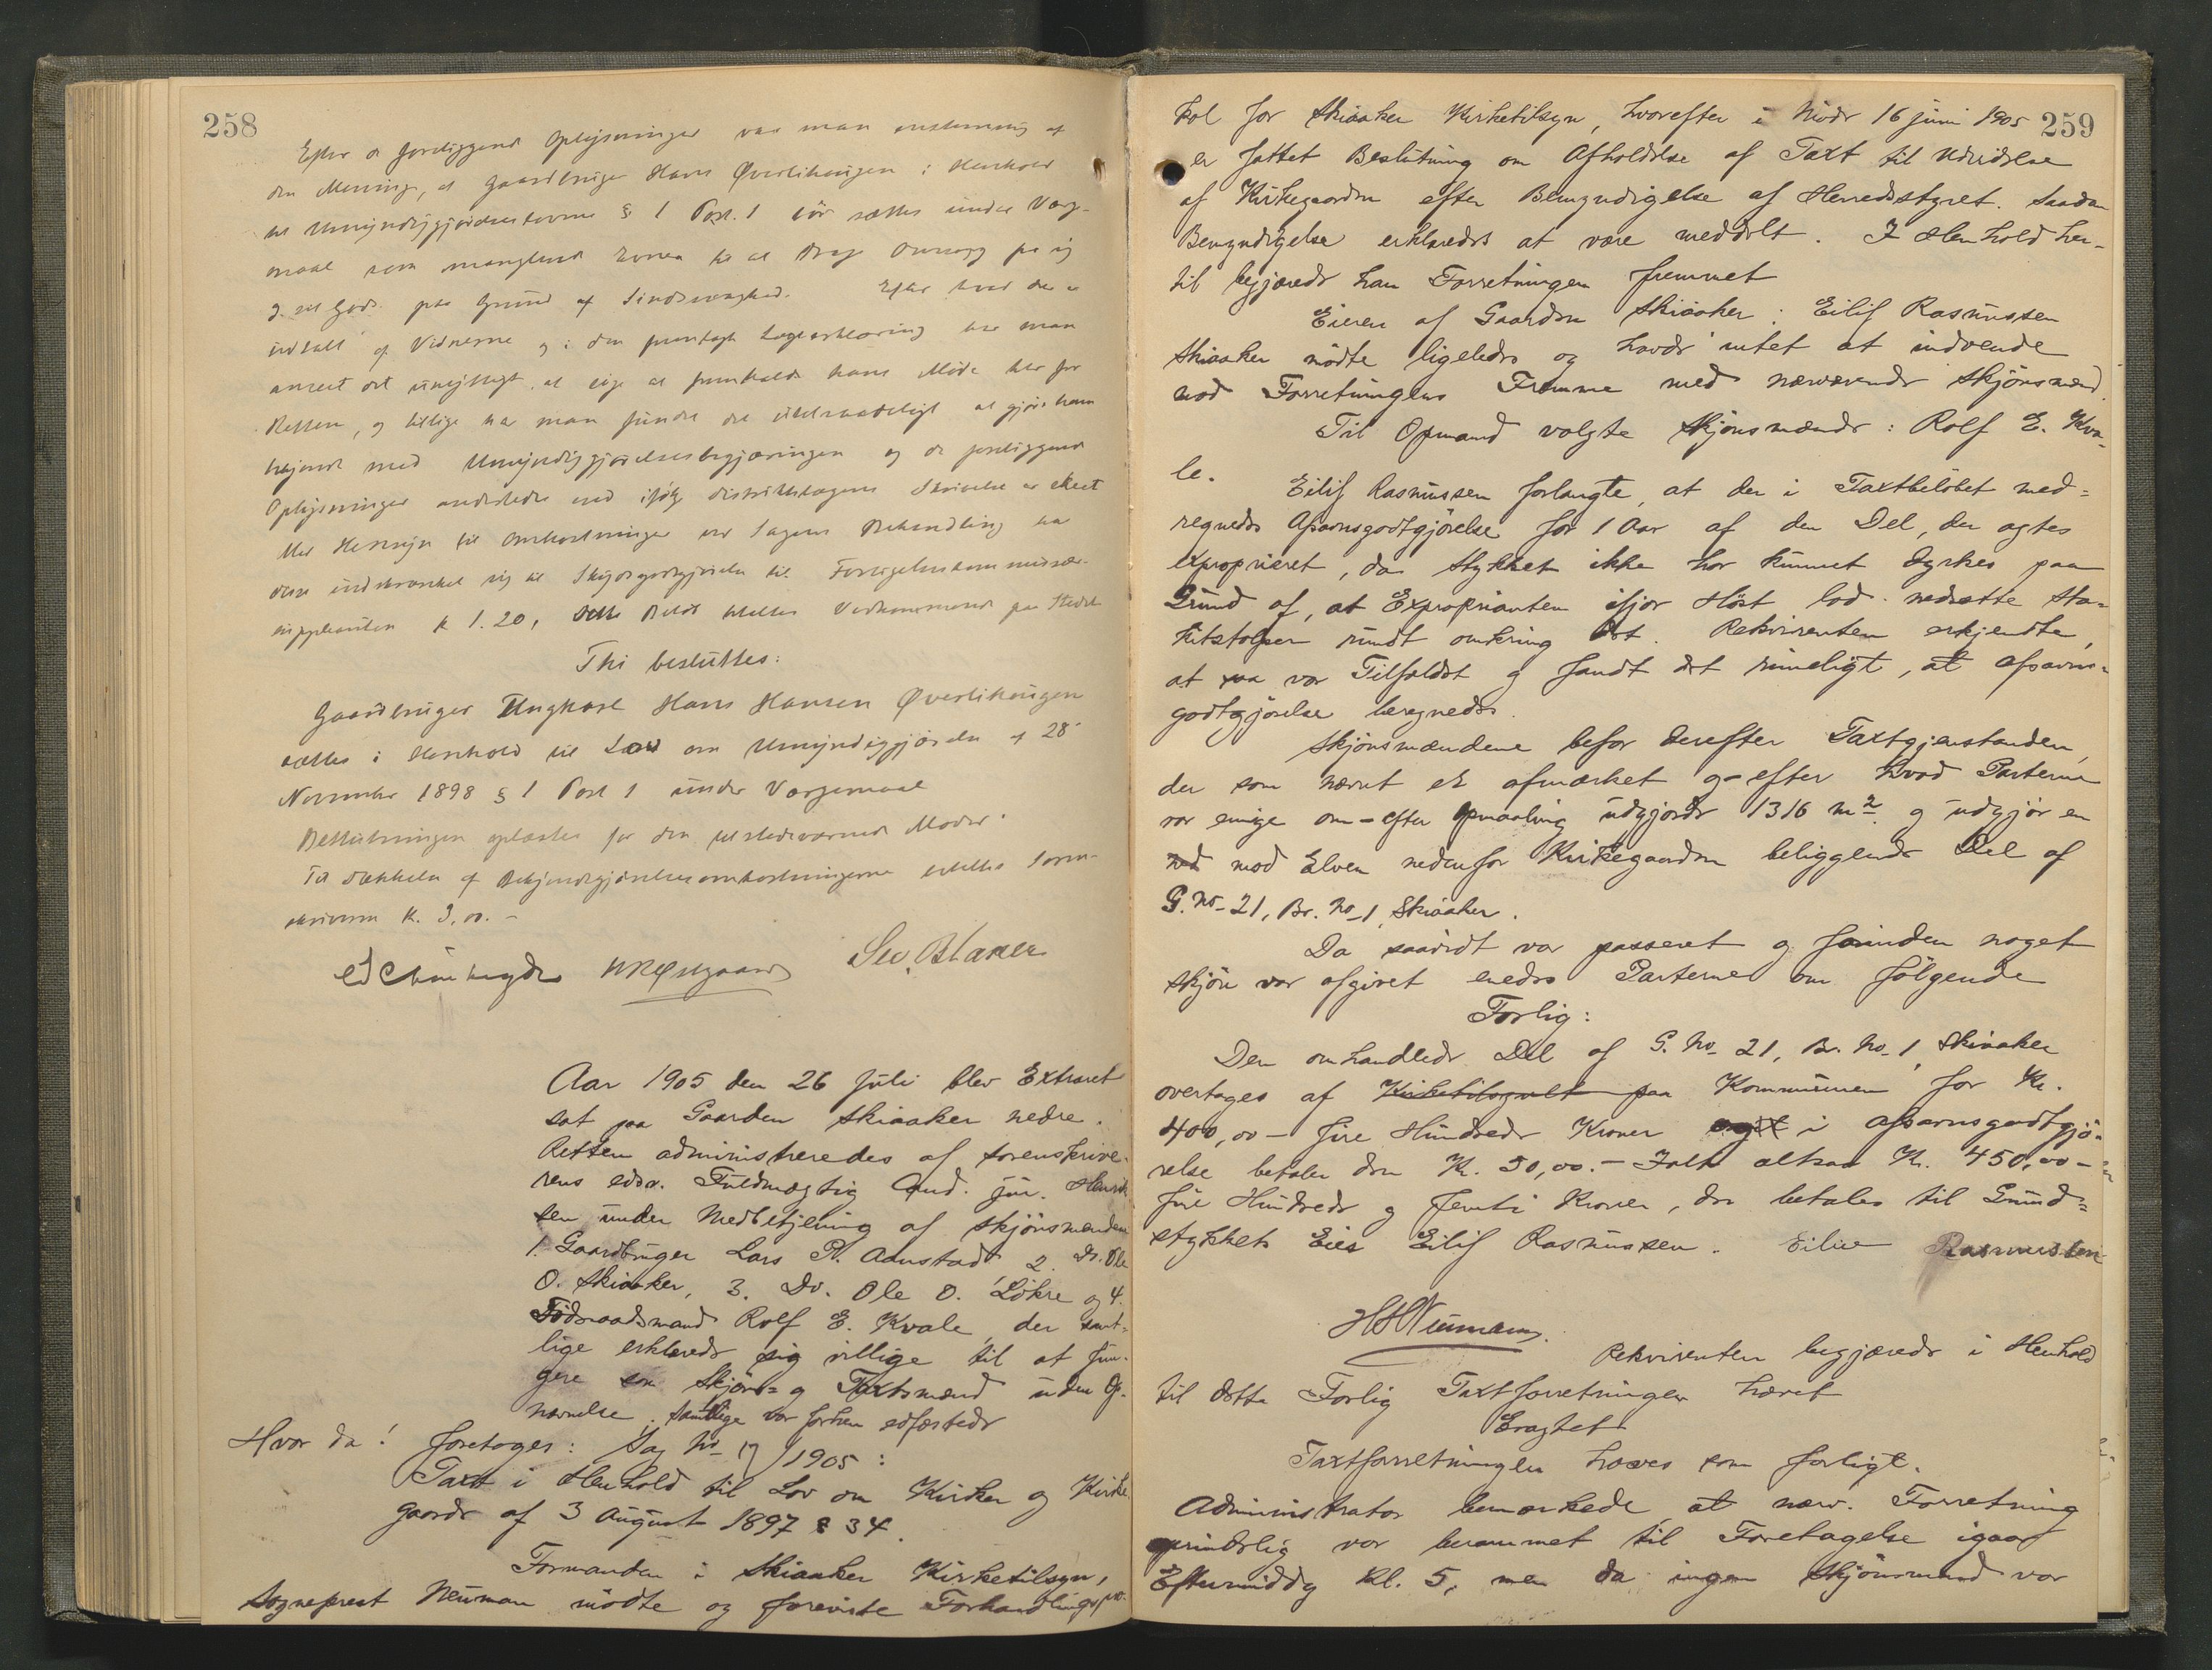 258
Efter de foreliggende Oplysninger var man enstemmig af
den Mening, at Gaardbruger Hans Øverlihaugen i Henhold
til Umyndiggjørelseslovens § 1 Post. 1 bör sættes under Værge-
maal som manglende Evnen til at drage Omsorg for sig
og sit Gods paa Grund af Sindssvaghed. Efter hvad der er
udtalt af Vidnerne og i den fremlagte Lægeerklæring har man
anseet det unyttigt at søge at fremkalde hans Møde her for
Retten, og tillige har man fundet det utilraadeligt at gjøre ham
bekjendt med Umyndiggjørelsesbegjæringen og de foreliggende
Oplysninger anderledes end ifølge Distriktslægens Skrivelse er skeet
Med Hensyn til Omkostninger ved Sagens Behandling har
disse indskrænket sig til Skydsgodtgjørelse til Forligelseskommissær-
suppleanten K 1.20, dette Beløb udlaltes Vedkommende paa Stedet
Thi besluttes:
Gaardbruger Ungkarl Hans Hansen Øverlihaugen
sættes i Henhold til Lov om Umyndiggjørelse af 28
November 1898 § 1 Post 1 under Værgemaal
Beslutningen oplæstes for den tilstedeværende Moder.
Til Dækkelse af Bekjendtgjørelsesomkostningerne udlaltes Soren-
skriveren K. 3,00. –
Sev. Blaker
Aar 1905 den 26 Juli blev Extraret
sat paa Gaarden Skiaaker nedre.
Retten administreredes af Sorenskrive-
rens edsv. Fuldmægtig Cand. jur. Henrik
sen under Medbetjening af Skjönsmændene
1. Gaardbruger Lars P. Aanstad, 2. Do. Ole
O. Skiaaker, 3. Do. Ole O. Lökre og 4.
Föderaadsmand Rolf E. Kvale, der samt-
lige erklærede sig villige til at fun-
gere som Skjöns= og Taxtsmænd uden Op-
nævnelse. Samtlige var forhen edfæstede
Hvor da! foretoges: Sag No 17/1905:
Taxt i Henhold til Lov om Kirker og Kirke
gaarde af 3 August 1897 § 34.
Formanden i Skiaaker Kirketilsyn,
Sogneprest Neuman mödte og foreviste Forhandlingspro-
259
tokol for Skiaaker Kirketilsyn, hvorefter i Möde 16 juni 1905
er fattet Beslutning om Afholdelse af Taxt til Udvidelse
af Kirkegaarden efter Bemyndigelse af Herredsstyret. Saadan
Bemyndigelse erklæredes at være meddelt. I Henhold her-
til begjærede han Forretningen fremmet
Eieren af Gaarden Skiaaker: Eilif Rasmussen
Skiaaker mödte ligeledes og havde intet at indvende
mod Forretningens Fremme med nærværende Skjönsmænd.
Til Opmand valgte Skjönsmændene: Rolf E. Kva-
le.
Eilif Rasmussen forlangte, at der i Taxtbelöbet med=
regnedes Afsavnsgodtgjörelse for 1 Aar af den Del, der agtes
exproprieret, da Stykket ikke har kunnet dyrkes paa
Grund af, at Exproprianten ifjor Höst lod nedsætte Sta=
kitstolper rundt omkring det. Rekvirenten erkjendte,
at saa var Tilfældet og fandt det rimeligt, at Afsavns=
godtgjörelse beregnedes.
Skjönsmændene befor derefter Taxtgjenstanden,
der som nævnt er afmærket og – efter hvad Parterne
var enige om – efter Opmaaling udgjorde 1316 m² og udgjör en
ned mod Elven nedenfor Kirkegaarden beliggende Del af
G. No 21, Br. No 1 Skiaaker.
Da saavidt var passeret og forinden noget
Skjön var afgivet enedes Parterne om følgende
Forlig:
Den omhandlede Del af G. No 21, Br. No 1, Skiaaker
overtages af Kirketilsynet paa Kommunen for Kr.
400,00 – fire Hundrede Kroner og i Afsavnsgodtgjö-
relse betaler den Kr. 50,00. – Ialt altsaa Kr. 450,00 –
fire Hundrede og femti Kroner, der betales til Grund=
stykkets Eier Eilif Rasmussen. Eiliv Rasmussen
HHNeumann.
Rekvirenten begjærede i Henhold
til dette Forlig Taxtforretningen hævet
Eragtet
Taxtforretningen hæves som forligt.
Administrator bemærkede, at nærv. Forretning
oprindelig var berammet til Foretagelse igaar
Eftermiddag kl. 5, men da ingen Skjönsmænd var